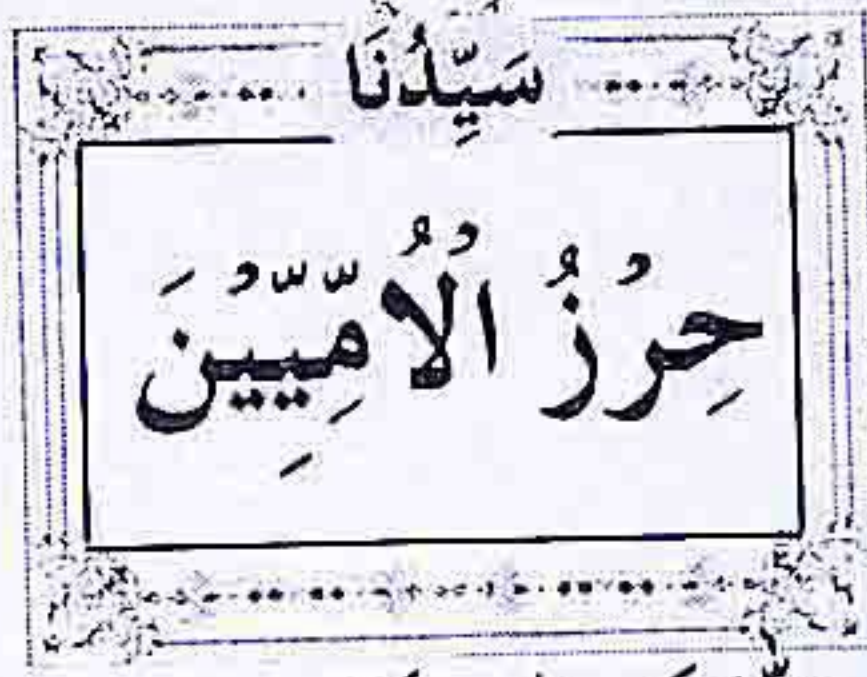 سَيِّدُنَا
حِرْزُ الْاُمِّيِّيْنَ